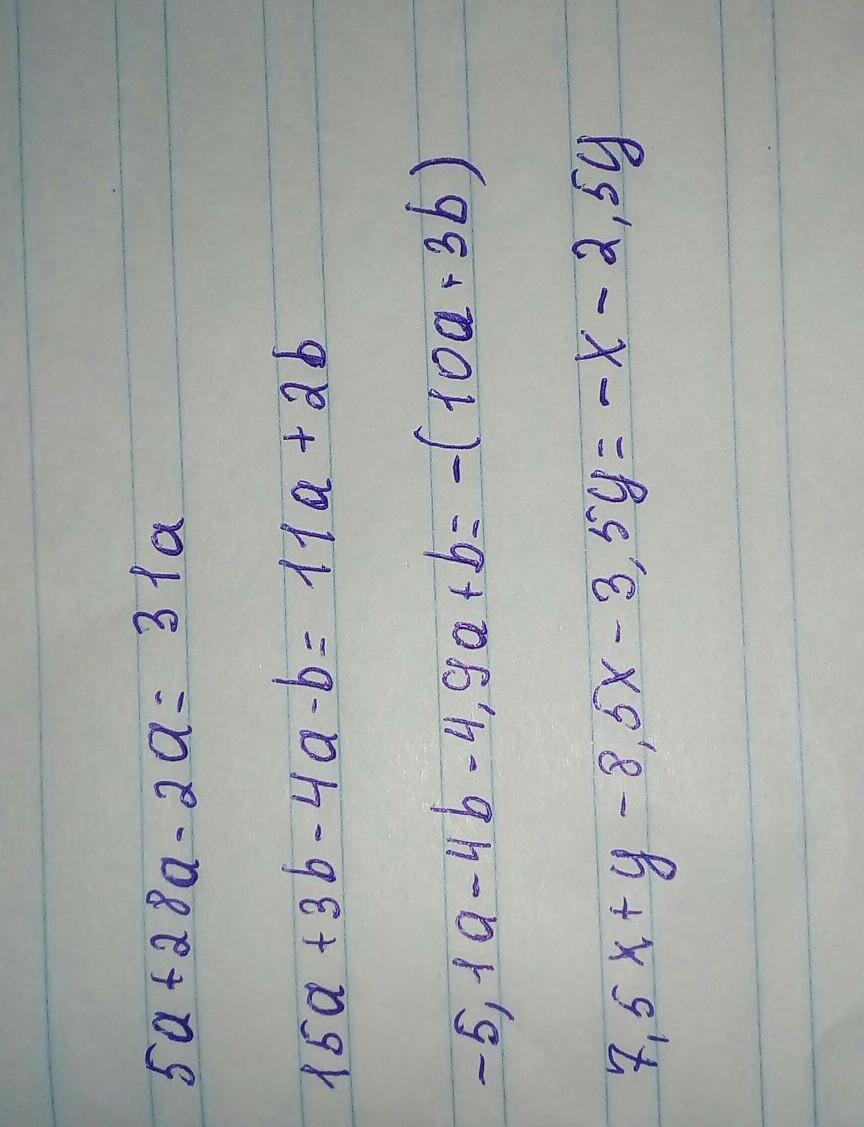 5a+28a-2a=31a
15a+3b-4a-b=11a+2b
-5,1a-4b-4,9a+b=-(10a+3b)
7,5x+y-8,5x-3,5y=-x-2,5y